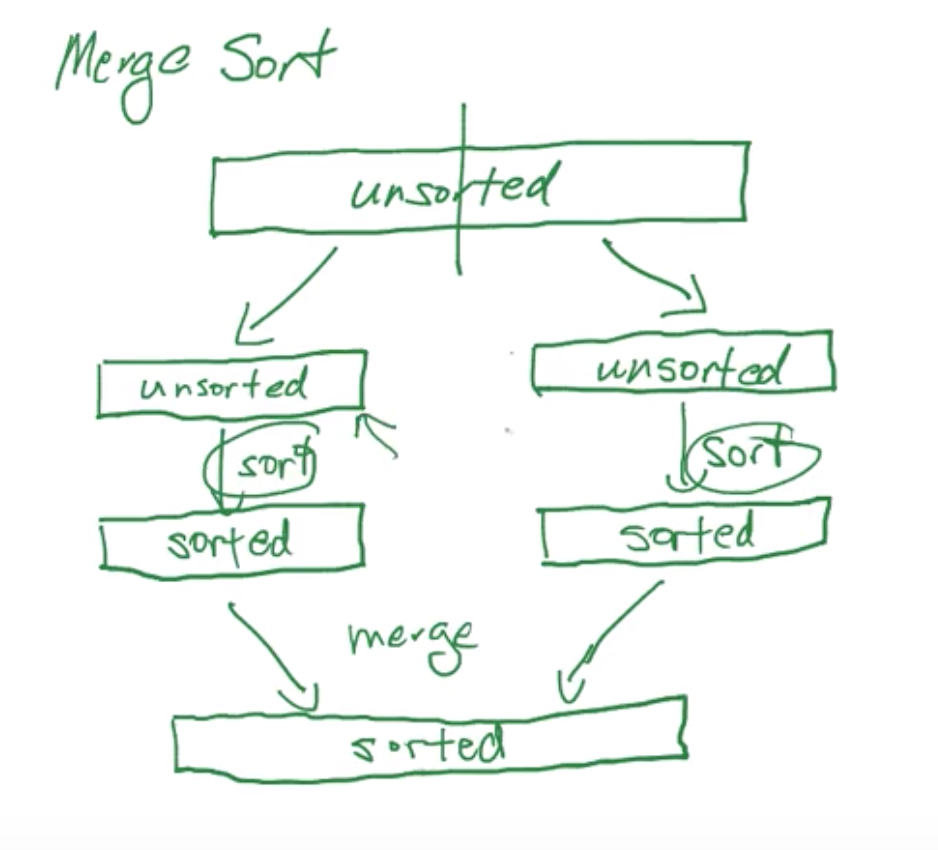 Merge Sort
unsorted
unsorted
unsorted
sort
sort
sorted
sorted
merge
sorted